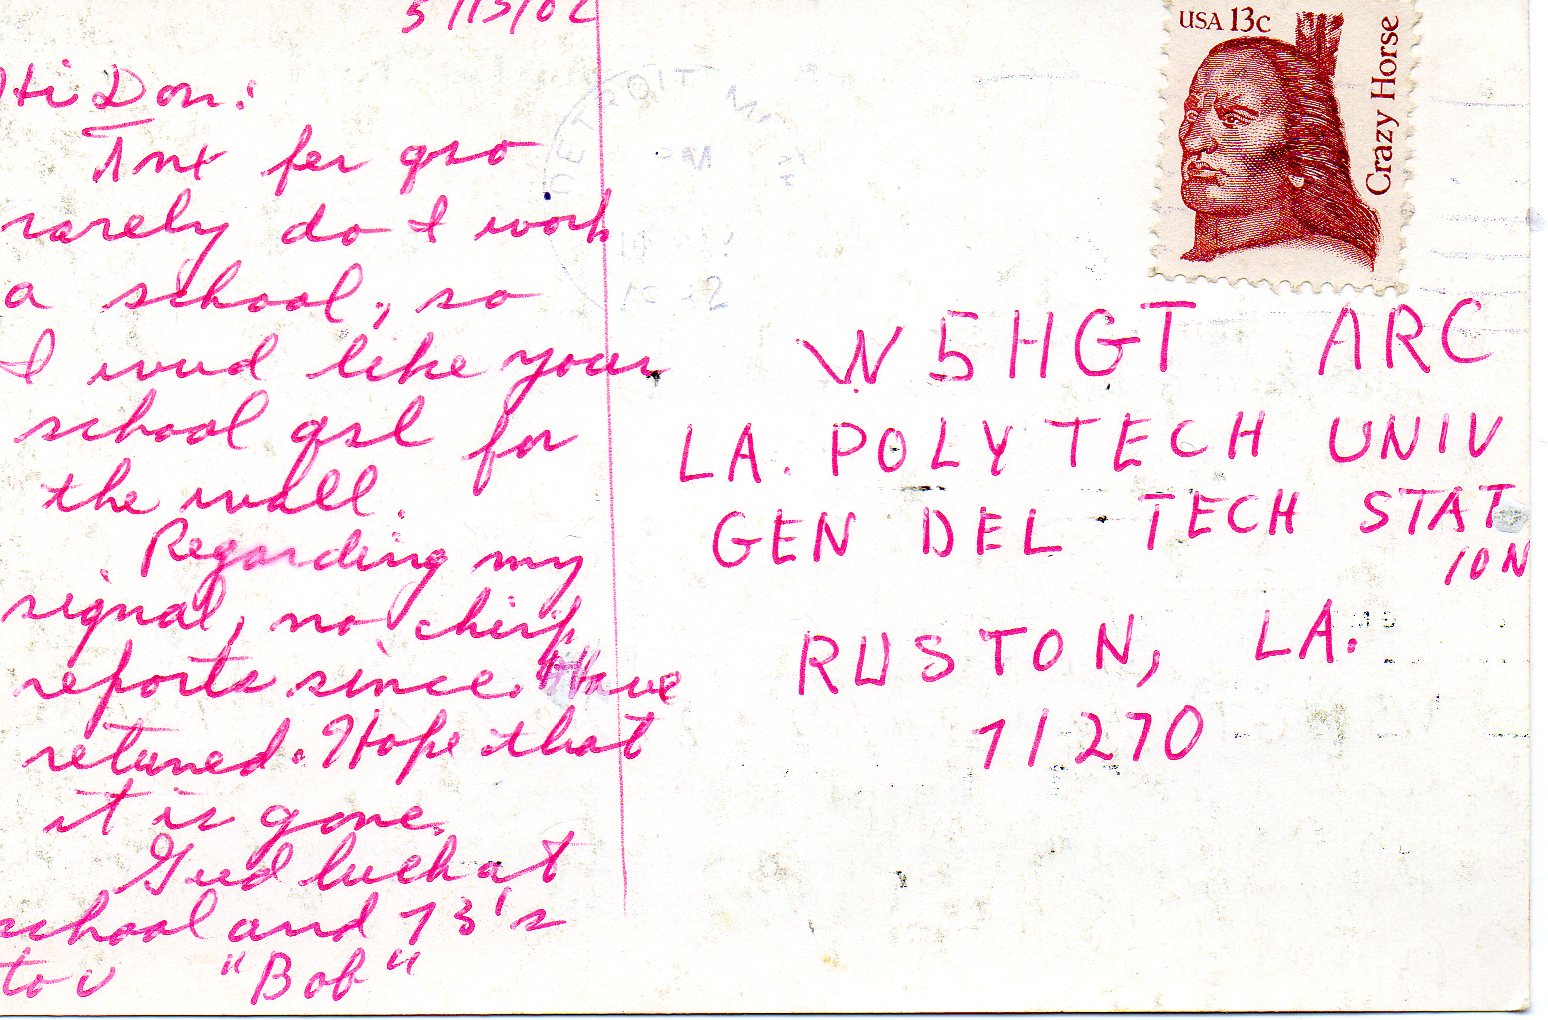 5/13/82
Hi Don:
Tnx fer qso
rarely do I work
a school, so
I wud like your
school qsl for
the wall.
Regarding my
signal, no chirp
reports since. Have
retuned. Hope that
it is gone.
Gud luck at
school and 73's
to u "Bob"
DETROIT
PM
USA 13c
Crazy Horse
W5HGT ARC
LA. POLYTECH UNIV
GEN DEL TECH STAT
ION
RUSTON, LA.
71270